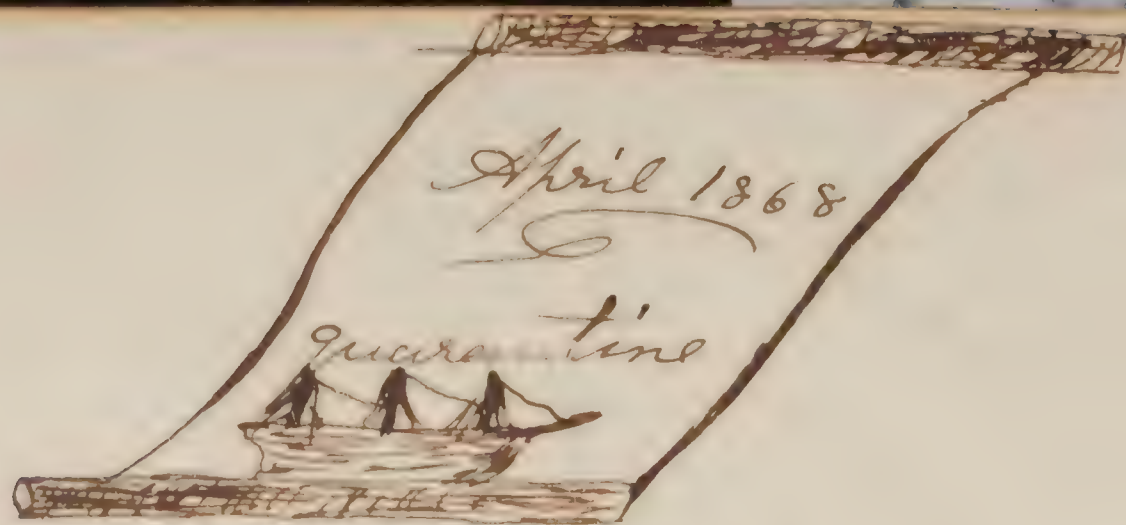 April 1868
quarantine